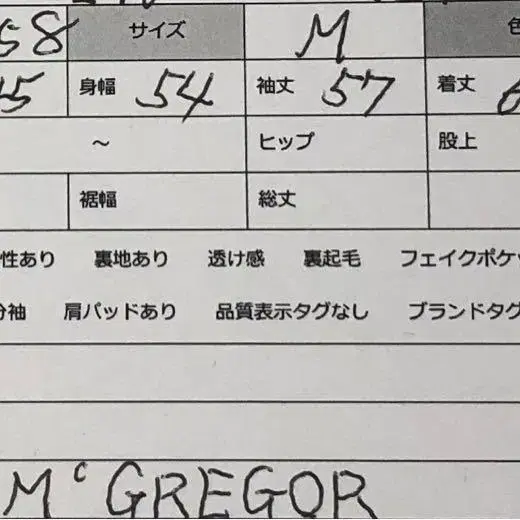 58 サイズ M 色
5 身幅 54 袖丈 57 着丈 6
～ ヒップ 股上
裾幅 総丈
性あり 裏地あり 透け感 裏起毛 フェイクポケッ
分袖 肩パッドあり 品質表示タグなし ブランドタグ
McGREGOR